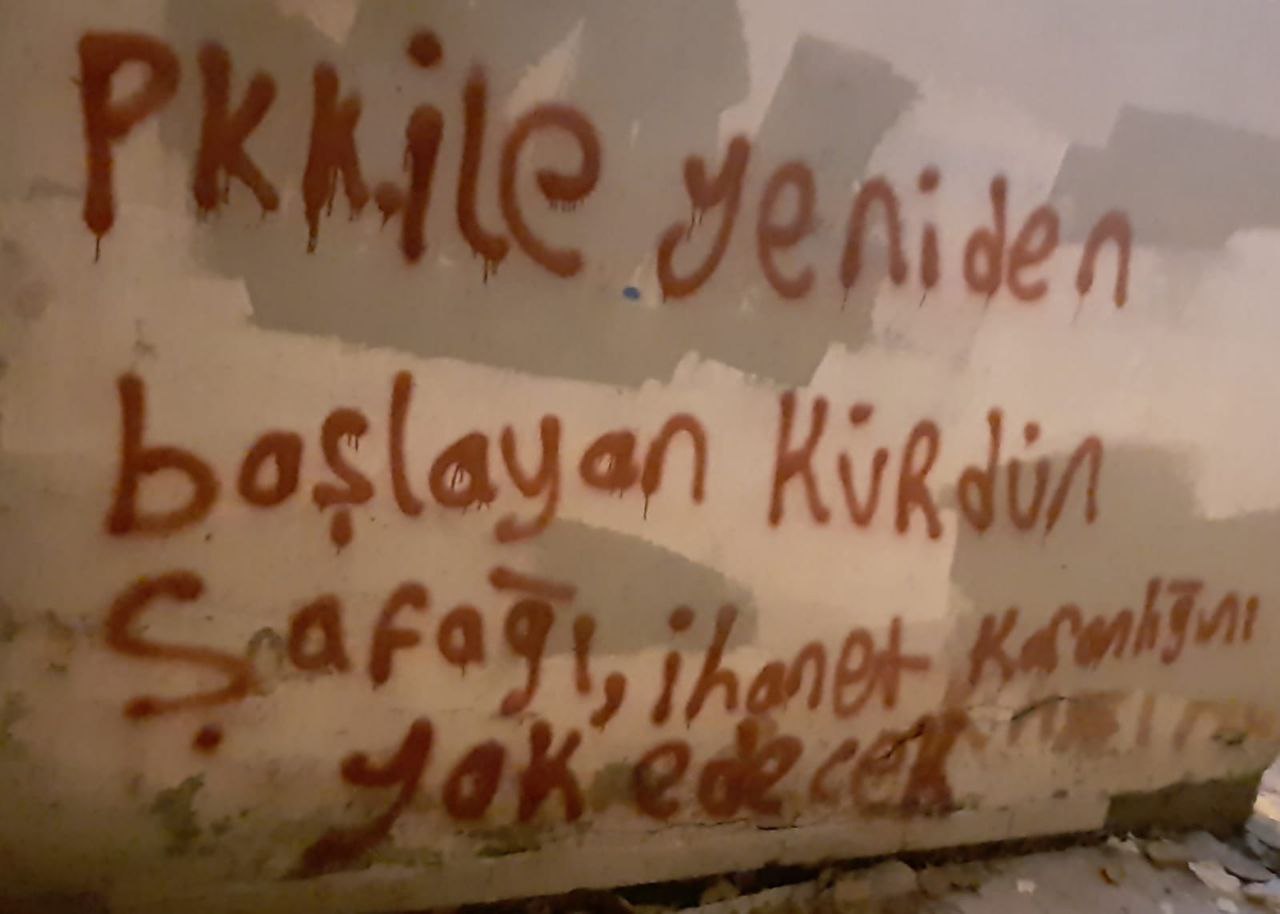 PKK.ile yeniden
başlayan KÜRdün
Şafağı, ihanet Karanlığını
yok edecek